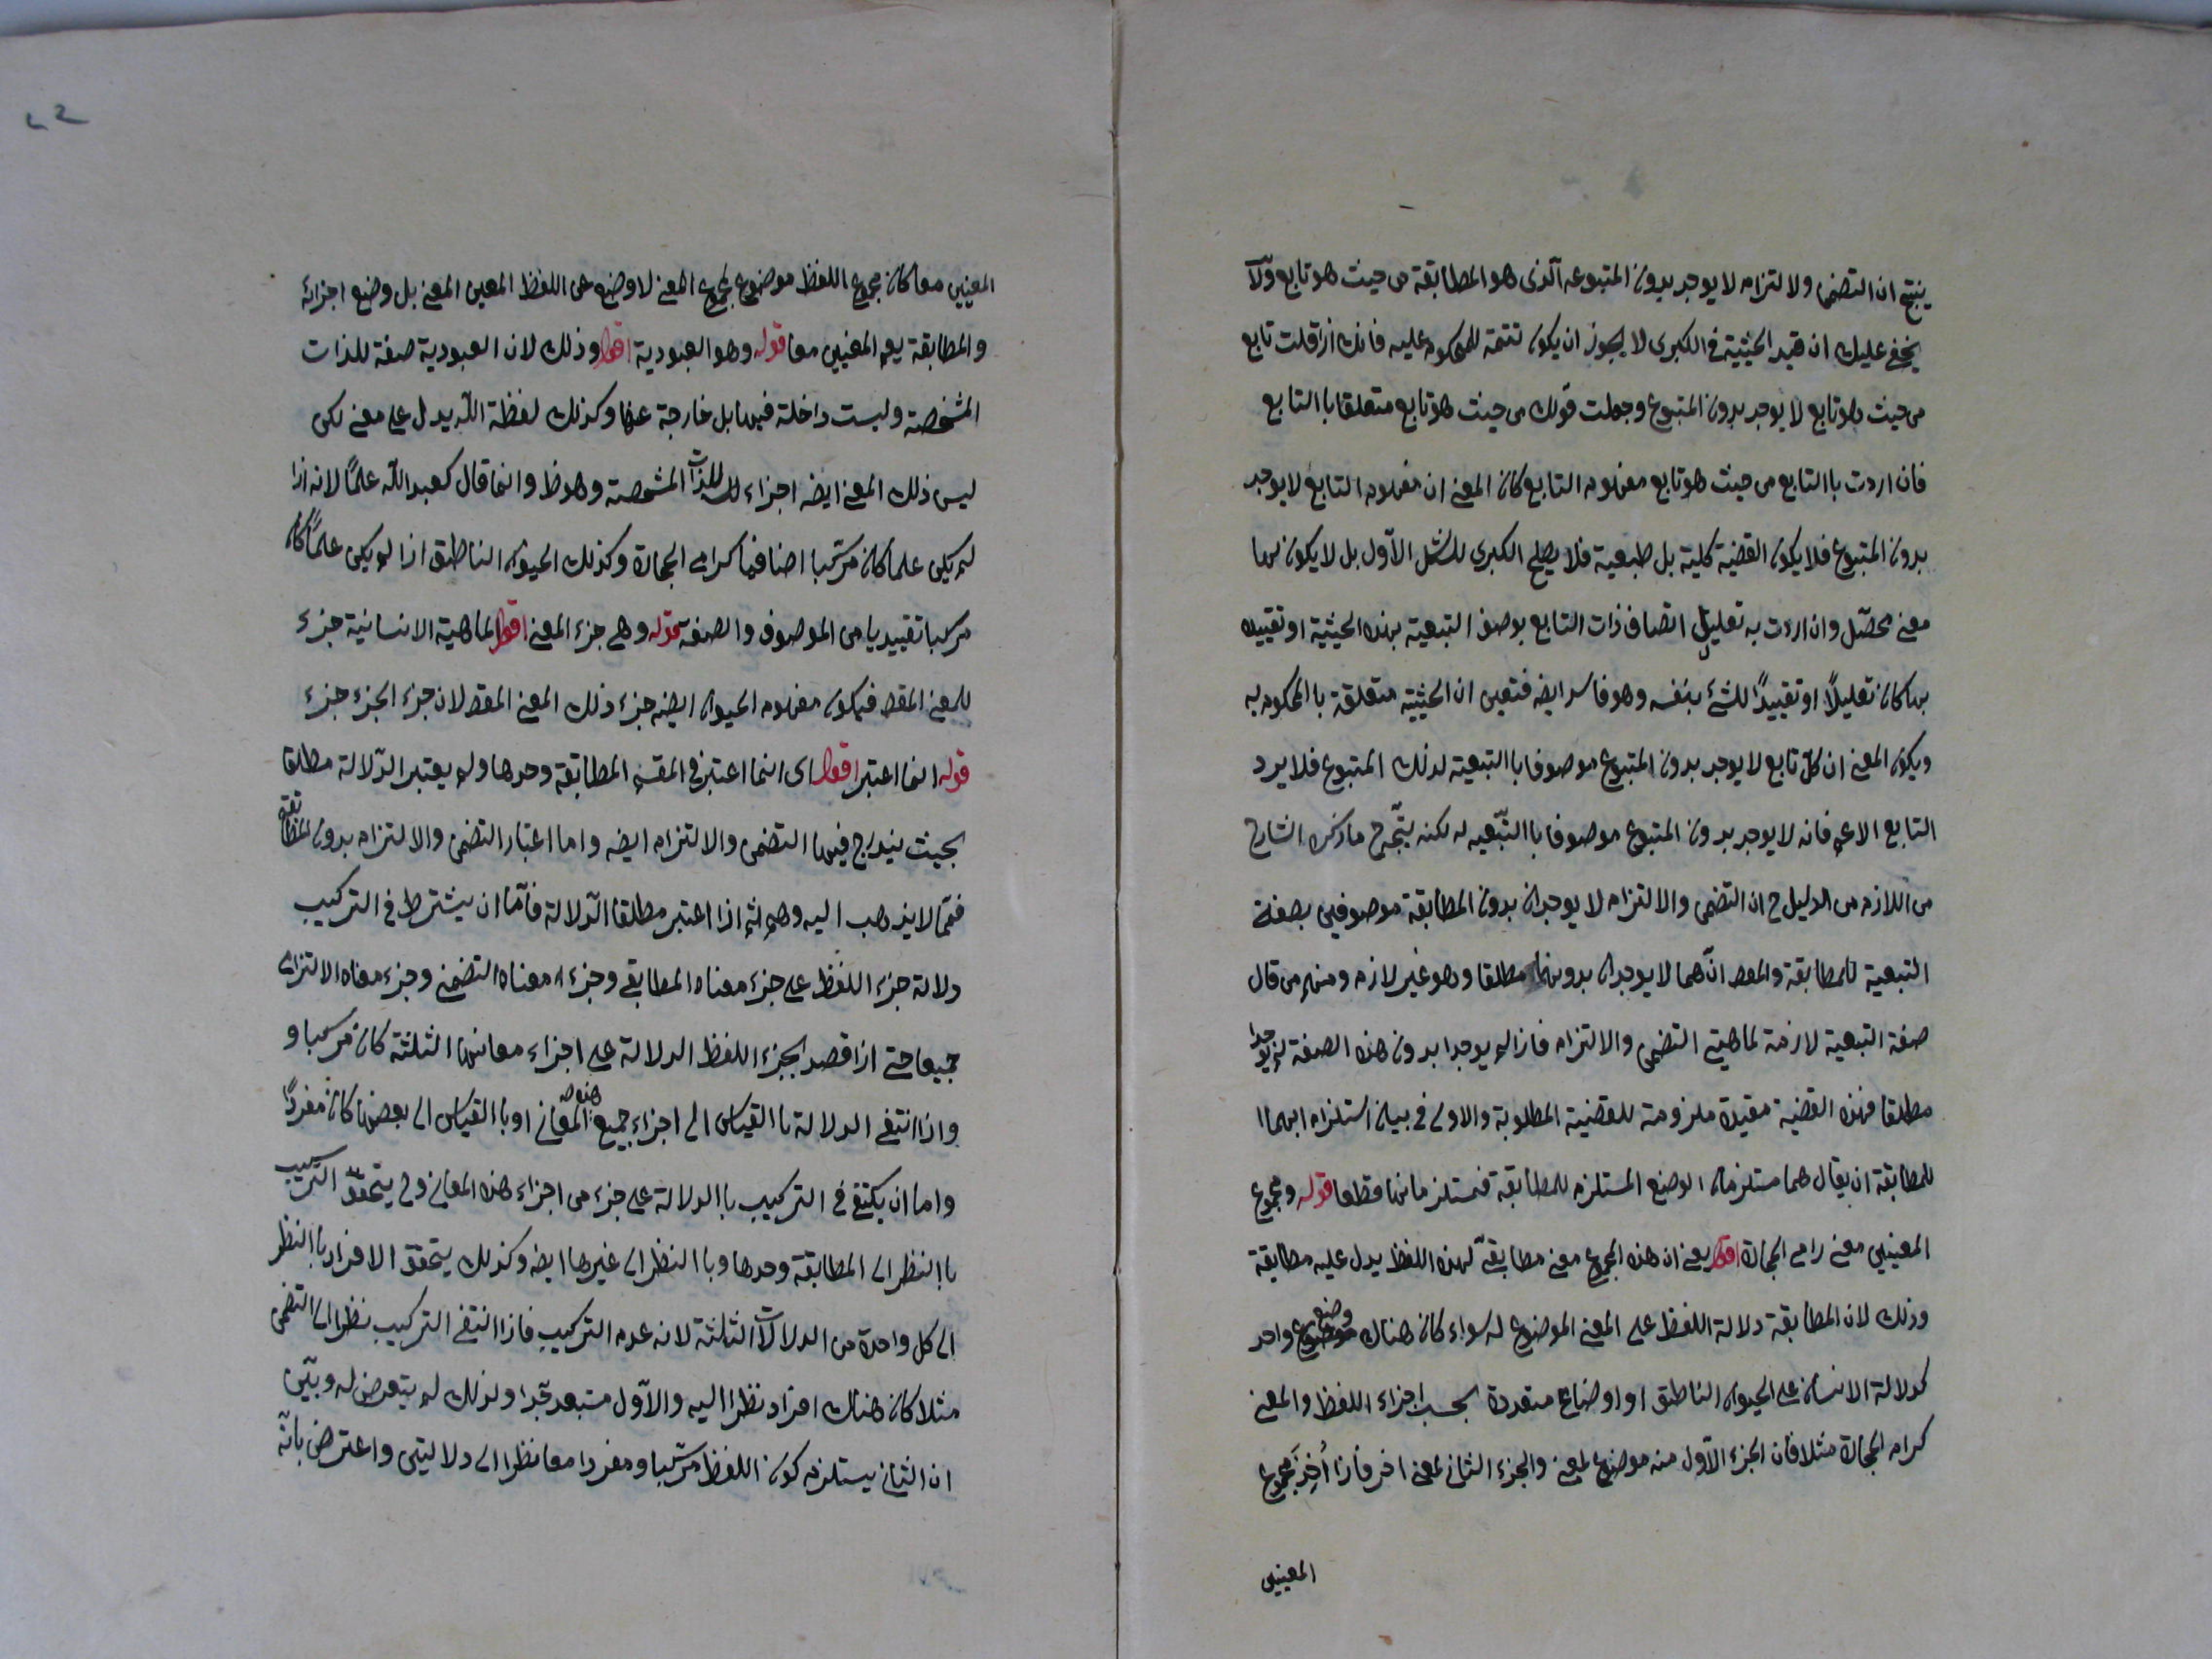 ينتج ان التضمن والالتزام لا يوجد بدون المتبوعه الذى هو المطابقة من حيث هو تابع ولا
يخفى عليك ان قيد الحيثية فى الكبرى لا يجوز ان يكون تتمة للمحكوم عليه فانك اذا قلت تابع
من حيث هو تابع لا يوجد بدون المتبوع وجعلت قولك من حيث هو تابع متعلقا باالتابع
فان اردت باالتابع من حيث هو تابع مفهوم التابع كان المعنى ان مفهوم التابع لا يوجد
بدون المتبوع فلا يكون القضية كلية بل طبعية فلا يصلح الكبرى للشكل الاول بل لا يكون لها
معنى محصّل وان اردت به تعليل اتصاف ذات التابع بوصف التبعية بهذه الحيثية او تقييده
بها كان تعليلاً او تقييداً للشئ بنفسه وهو فاسد ايضه فتعين ان الحيثية متعلقة باالمحكوم به
ويكون المعنى ان كل تابع لا يوجد بدون المتبوع موصوفا باالتبعية لذلك المتبوع فلا يرد
التابع الاعم فانه لا يوجد بدون المتبوع موصوفا باالتبعيه له لكنه يتجه ح ما ذكره الشارح
من اللازم من الدليل ح ان التضمن والالتزام لا يوجدان بدون المطابقة موصوفين بصفة
التبعية للمطابقة والمط انهما لا يوجدان بدونها مطلقا وهو غير لازم ومنهم من قال
صفة التبعية لازمة لماهيتى التضمن والالتزام فاذا لم يوجدا بدون هذه الصفة لم يوجدا
مطلقا فهذه القضية مقيدة ملزومة للقضية المطلوبة والاولى فى بيان استلزام ايهما
للمطابقة ان يقال هما مستلزمان الوضع المستلزم للمطابقة فيستلزمانها قطعا قوله ومجموع
المعنيين معنى رامى الحجارة اقول يعنى ان هذه المجموع معنى مطابقى لهذه اللفظ يدل عليه مطابقة
وذلك لان المطابقة دلالة اللفظ على المعنى الموضوع له سواء كان هناك وضع واحد
كدلالة الانسان على الحيوان الناطق او اوضاع متعددة بحسب اجزاء اللفظ والمعنى
كرام الحجارة مثلا فان الجزء الاول منه موضوع لمعنى والجزء الثانى لمعنى اخر فاذا أخذ مجموع
المعنيين
المعنيين معا كان مجموع اللفظ موضوع لمجموع المعنى لا وضع عن اللفظ المعين المعنى بل وضع اجزائه
والمطابقة يعم المعنيين معا قوله وهو العبودية اقول وذلك لان العبودية صفة للذات
المشخصة وليست داخلة فيها بل خارجة عنها وكذلك لفظة الله يدل على معنى لكن
ليس ذلك المعنى ايضه اجزاء للذات المشخصة وهو ظ وانما قال كعبد الله علماً لانه اذا
لم يكن علما كان مركبا اضافيا كرامى الحجارة وكذلك الحيوان الناطق اذا لم يكن علماً كان
مركبا تقييديا من الموصوف والصفة قوله وهى جزء المعنى اقول الماهية الانسانية جزء
للمعنى المقصد فيكون مفهوم الحيوان ايضه جزء ذلك المعنى المقصد لان جزء الجزء جزء
قوله انما اعتبر اقول اى انما اعتبر فى المقسم المطابقة وحدها ولم يعتبر الدلالة مطلقا
بحيث يندرج فيها التضمن والالتزام ايضه واما اعتبار التضمن والالتزام بدون المطابقة
فمما لا يذهب اليه وهم ثم اذا اعتبر مطلقا الدلالة فامّا ان يشترط فى التركيب
دلالة جزء اللفظ على جزء معناه المطابقى وجزء معناه التضمنى وجزء معناه الالتزامى
جميعا حتى اذا قصد بجزء اللفظ الدلالة على اجزاء معانيها الثلثة كان مركبا و
واذا انتفى الدلالة باالقياس الى اجزاء جميع هذه المعانى او باالقياس الى بعضها كان مفرداً
واما ان يكتفى فى التركيب باالدلالة على جزء من اجزاء هذه المعانى وح يتحقق التركيب
باالنظر الى المطابقة وحدها وباالنظر الى غيرها ايضه وكذلك يتحقق الافراد باالنظر
الى كل واحدة من الدلالات الثلثة لانه عدم التركيب فاذا انتفى التركيب نظرا الى التضمن
مثلا كان هناك افراد نظرا اليه والاول مستبعد جدا ولذلك لم يتعرض له وبيّن
ان الثانى يستلزم كون اللفظ مركبا ومفردا معا نظرا الى دلالتين واعترض بانّه